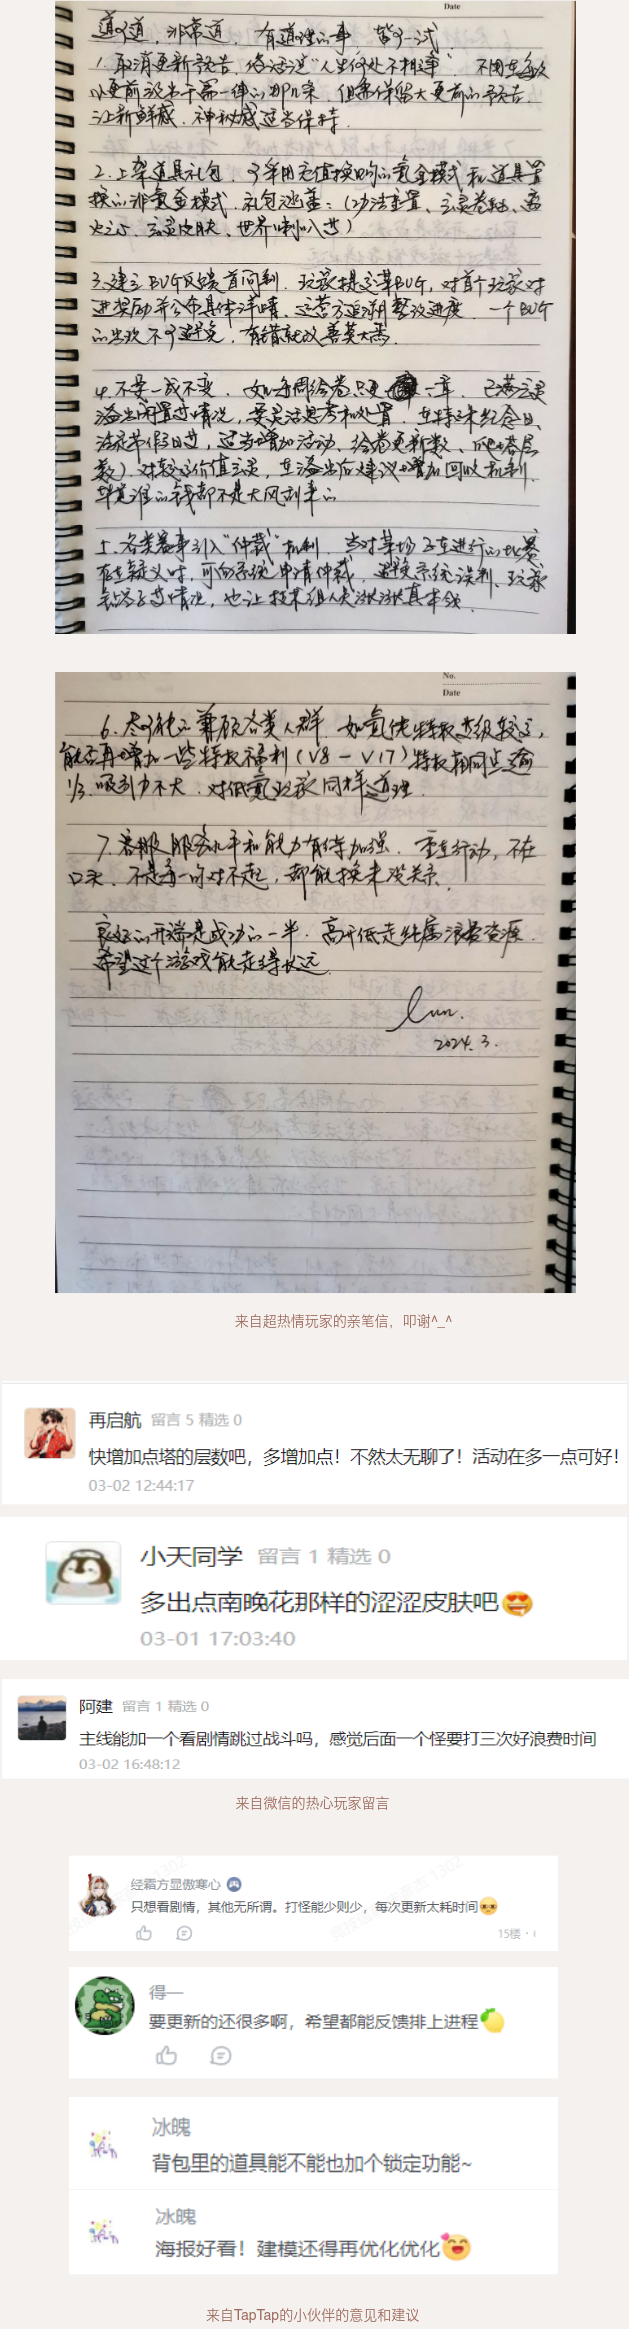 Date
道可道，非常道，有道理的事，皆可一试.
1. 取消更新预告，俗话说"人生何处不相逢"，不用在每次
小更前没书干需一律的那几条，但需保留大更前的预告，
让新鲜感、神秘感适当保持.
2. 上架道具礼包，可采用充值换购的氪金模式和道具置
换的非氪金模式，礼包涵盖：(功法重置、玄灵卷轴、
火之心、玄灵皮肤、世界喇叭等)
3. 建立BUG反馈首问制，玩家提交某BUG，对首个玩家对
进奖励并公布具体详情、运营方追溯整改进度，一个BUG
的出现不可避免，有错就改善莫大焉.
4. 不要一成不变，如每周绘卷只更一章，已满玄灵
溢出闲置等情况，要灵活思考和处置，在特殊纪念日、
法定节假日等，适当增加活动，绘卷更新数、爬塔层
数)，对较高价值玄灵，在溢出后建议增加回收机制，
毕竟谁的钱都不是大风刮来的
5. 各类赛事引入"仲裁"机制，当对某场正在进行的比赛
存在疑义时，可向系统申请仲裁，避免系统误判、玩家
钻空子等情况，也让技术组人员涨涨真本领.
No.
Date
6. 尽可能的兼顾各类人群，如氪佬特权等级较高，
能否再增加一些特权福利(V8－V17)特权相同点逾
1/3，吸引力不大，对低氪玩家同样道理.
7. 客服服务水平和能力有待加强，重在行动，不在
口头，不是每一句对不起，都能换来没关系.
良好的开端是成功的一半，高开低走纯属浪费资源.
希望这个游戏能走得长远.
2024.3.
来自超热情玩家的亲笔信，叩谢^_^
再启航 留言 5 精选 0
快增加点塔的层数吧，多增加点！不然太无聊了！活动在多一点可好！
03-02 12:44:17
小天同学 留言 1 精选 0
多出点南晚花那样的涩涩皮肤吧😍
03-01 17:03:40
阿建 留言 1 精选 0
主线能加一个看剧情跳过战斗吗，感觉后面一个怪要打三次好浪费时间
03-02 16:48:12
来自微信的热心玩家留言
经霜方显傲寒心
只想看剧情，其他无所谓。打怪能少则少，每次更新太耗时间
15楼 ·
得一
要更新的还很多啊，希望都能反馈排上进程🍋
冰魄
背包里的道具能不能也加个锁定功能~
冰魄
海报好看！建模还得再优化优化🥰
来自TapTap的小伙伴的意见和建议